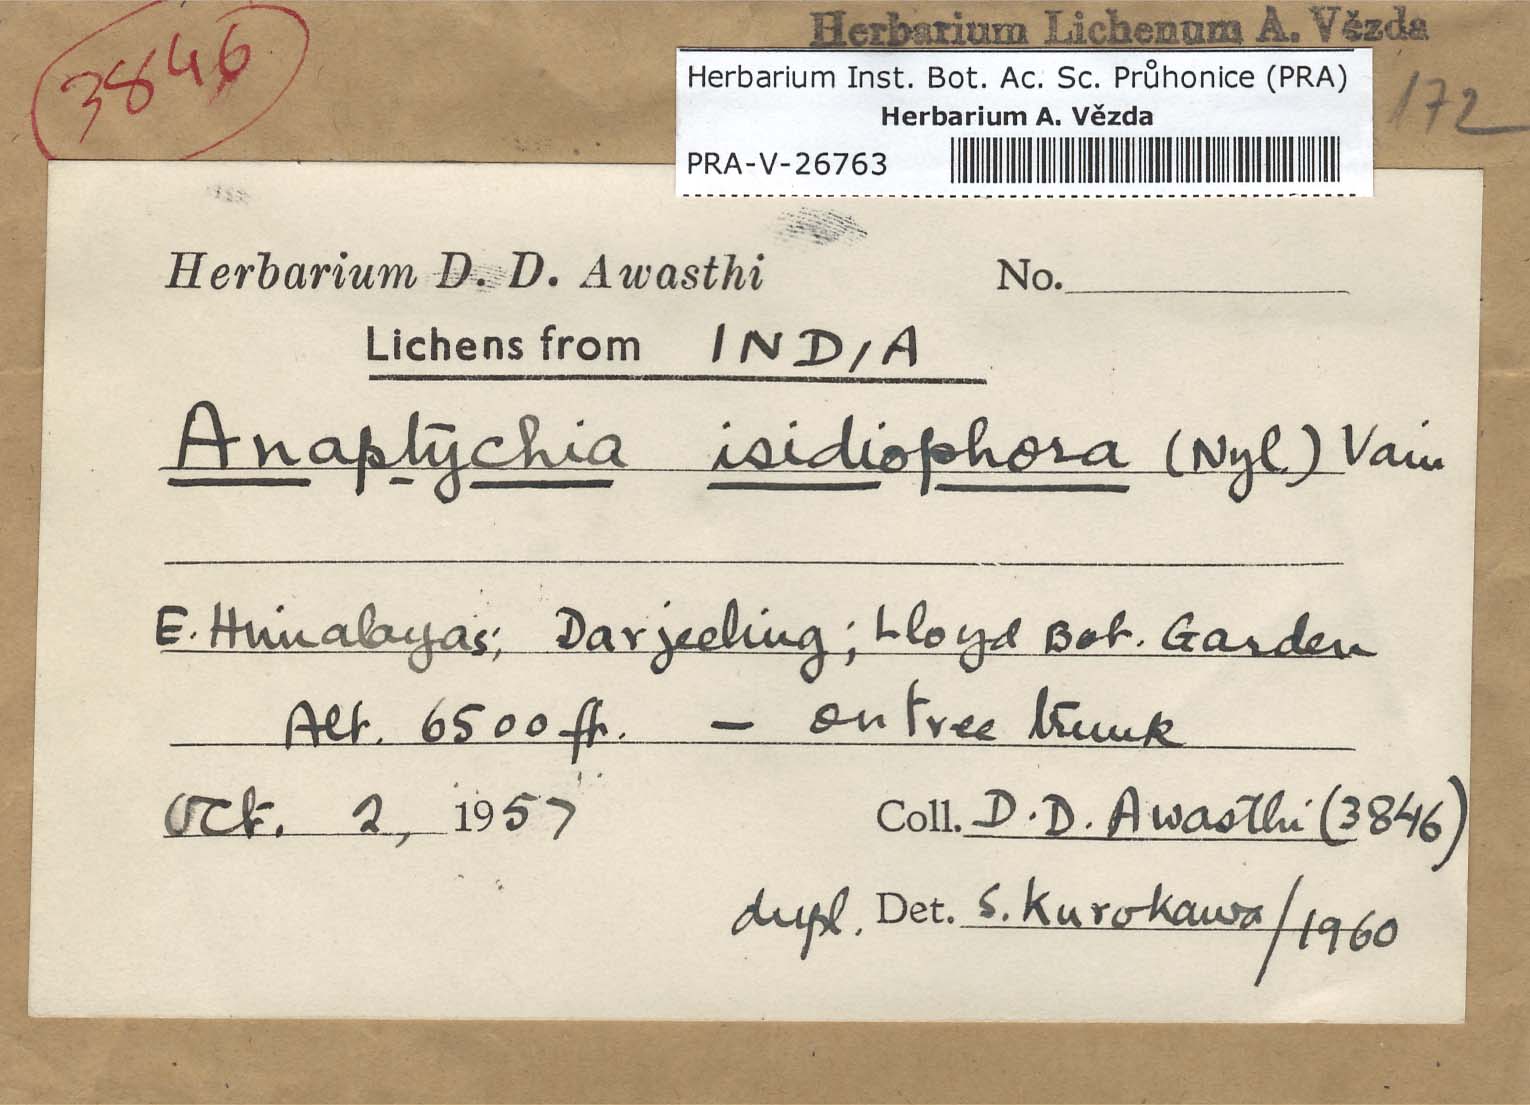 3846
Herbarium Lichenum A. Vězda
Herbarium Inst. Bot. Ac. Sc. Průhonice (PRA)
Herbarium A. Vězda
PRA-V-26763
172
Herbarium D. D. Awasthi No.
Lichens from INDIA
Anaptychia isidiophora (Nyl.) Vain
E. Himalayas; Darjeeling; Lloyd Bot. Garden
Alt. 6500 ft. – on tree trunk
Oct. 2, 1957 Coll. D. D. Awasthi (3846)
dupl. Det. S. Kurokawa/1960